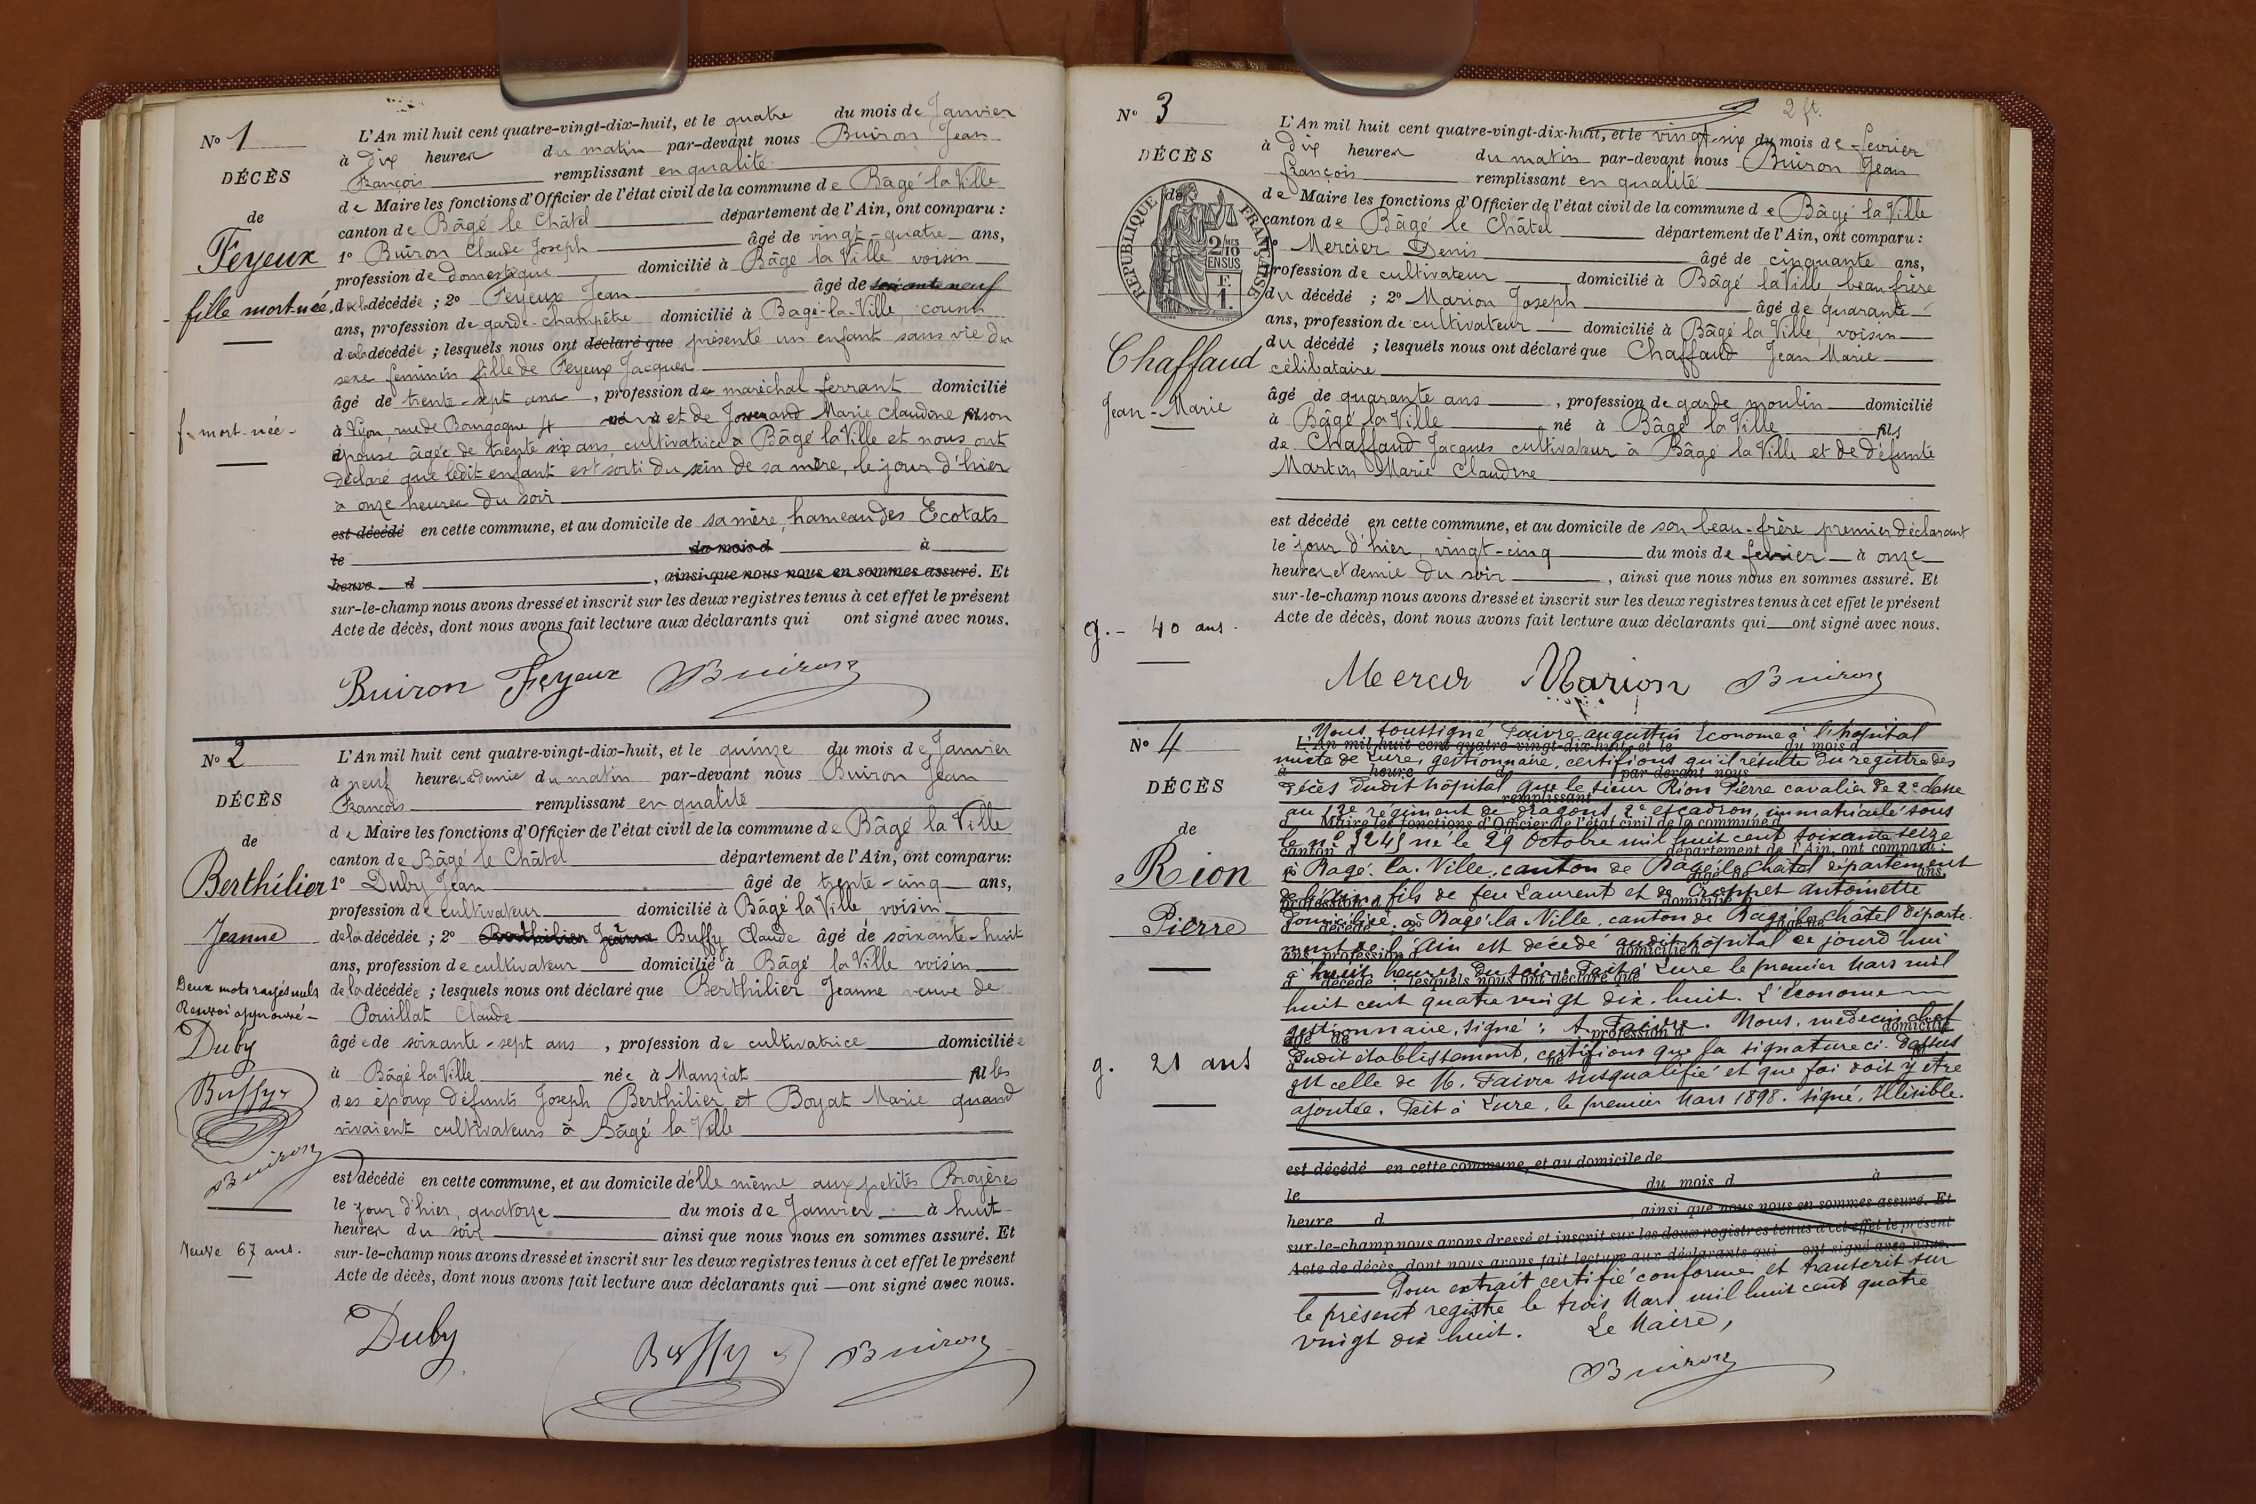 N° 1
DÉCÈS
de
Feyeux
fille mort-née.
f. mort-née -
L'An mil huit cent quatre-vingt-dix-huit, et le quatre du mois de Janvier
à dix heures du matin par-devant nous Buiron Jean
François remplissant en qualité
de Maire les fonctions d'Officier de l'état civil de la commune de Bâgé la Ville
canton de Bâgé le Châtel département de l'Ain, ont comparu :
1° Buiron Claude Joseph âgé de vingt-quatre ans,
profession de domestique domicilié à Bâgé la Ville voisin
de la décédée ; 2° Feyeux Jean âgé de soixante neuf
ans, profession de garde-champêtre domicilié à Bagé-la-Ville, cousin
de la décédée ; lesquels nous ont déclaré que présenté un enfant sans vie du
sexe féminin fille de Feyeux Jacques
âgé de trente-sept ans, profession de maréchal ferrant domicilié
à Dijon, rue de Bourgogne 4 et de Marie Claudine son
épouse âgée de trente six ans, cultivatrice à Bâgé la Ville et nous ont
déclaré que ledit enfant est sorti du sein de sa mère, le jour d'hier
à onze heures du soir
est décédé en cette commune, et au domicile de sa mère, hameau des Ecotats
le du mois d à
heure d , ainsi que nous nous en sommes assuré. Et
sur-le-champ nous avons dressé et inscrit sur les deux registres tenus à cet effet le présent
Acte de décès, dont nous avons fait lecture aux déclarants qui ont signé avec nous.
Buiron Feyeux Buiron
N° 2
DÉCÈS
de
Berthilier
Jeanne
Deux mots rayés nuls
Renvoi approuvé -
Duby
Buffy
Buiron
Veuve 67 ans.
L'An mil huit cent quatre-vingt-dix-huit, et le quinze du mois de Janvier
à neuf heures et demie du matin par-devant nous Buiron Jean
François remplissant en qualité
de Maire les fonctions d'Officier de l'état civil de la commune de Bâgé la Ville
canton de Bâgé le Châtel département de l'Ain, ont comparu:
1° Duby Jean âgé de trente-cinq ans,
profession de cultivateur domicilié à Bâgé la Ville voisin
de la décédée ; 2° Berthilier Jeanne Buffy Claude âgé de soixante-huit
ans, profession de cultivateur domicilié à Bâgé la Ville voisin
de la décédée ; lesquels nous ont déclaré que Berthilier Jeanne veuve de
Pouillat Claude
âgée de soixante-sept ans, profession de cultivatrice domiciliée
à Bâgé la Ville née à Manziat fille
des époux défunts Joseph Berthilier et Boyat Marie quand
vivaient cultivateurs à Bâgé la Ville
est décédé en cette commune, et au domicile d'elle même aux petites Broyères
le jour d'hier, quatorze du mois de Janvier à huit
heures du soir ainsi que nous nous en sommes assuré. Et
sur-le-champ nous avons dressé et inscrit sur les deux registres tenus à cet effet le présent
Acte de décès, dont nous avons fait lecture aux déclarants qui ont signé avec nous.
Duby Buffy Buiron
2 ft.
N° 3
DÉCÈS
de
RÉPUBLIQUE FRANÇAISE
2/10 MES
EN SUS
F.
1.
Chaffaud
Jean-Marie
g. - 40 ans.
L'An mil huit cent quatre-vingt-dix-huit, et le vingt-six du mois de février
à dix heures du matin par-devant nous Buiron Jean
François remplissant en qualité
de Maire les fonctions d'Officier de l'état civil de la commune de Bâgé la Ville
canton de Bâgé le Châtel département de l'Ain, ont comparu :
1° Mercier Denis âgé de cinquante ans,
profession de cultivateur domicilié à Bâgé la Ville beau frère
du décédé ; 2° Marion Joseph âgé de quarante
ans, profession de cultivateur domicilié à Bâgé la Ville, voisin
du décédé ; lesquels nous ont déclaré que Chaffaud Jean Marie
célibataire
âgé de quarante ans, profession de garde moulin domicilié
à Bâgé la Ville né à Bâgé la Ville fils
de Chaffaud Jacques cultivateur à Bâgé la Ville et de défunte
Martin Marie Claudine
est décédé en cette commune, et au domicile de son beau-frère premier déclarant
le jour d'hier, vingt-cinq du mois de février à onze
heures et demie du soir, ainsi que nous nous en sommes assuré. Et
sur-le-champ nous avons dressé et inscrit sur les deux registres tenus à cet effet le présent
Acte de décès, dont nous avons fait lecture aux déclarants qui ont signé avec nous.
Mercier Marion Buiron
N° 4
DÉCÈS
de
Rion
Pierre
g. 21 ans
Nous soussigné Faivre augustin Econome à l'hôpital
mixte de Lure, gestionnaire, certifions qu'il résulte du registre des
décès dudit hôpital que le sieur Rion Pierre cavalier de 2e classe
au 12e régiment de dragons 2e escadron, immatriculé sous
le n° 5245 né le 29 Octobre mil huit cent soixante seize
à Bagé-la-Ville, canton de Bâgé-le-Châtel département
de l'Ain, fils de feu Laurent et de Croppet Antoinette
domiciliée à Bagé-la-Ville, canton de Bagé-le-Châtel départe-
ment de l'Ain est décédé audit hôpital ce jourd'hui
à huit heures du soir. Fait à Lure le premier Mars mil
huit cent quatre vingt dix-huit. L'économe
gestionnaire, signé : A. Faivre. Nous, médecin chef
dudit établissement, certifions que la signature ci-dessus
est celle de M. Faivre susqualifié et que foi doit y être
ajoutée. Fait à Lure, le premier Mars 1898. signé, Illisible.
est décédé en cette commune, et au domicile de
le du mois d à
heure d , ainsi que nous nous en sommes assuré. Et
sur-le-champ nous avons dressé et inscrit sur les deux registres tenus à cet effet le présent
Acte de décès, dont nous avons fait lecture aux déclarants qui ont signé avec nous.
Pour extrait certifié conforme et transcrit sur
le présent registre le trois Mars mil huit cent quatre
vingt dix huit. Le Maire,
Buiron